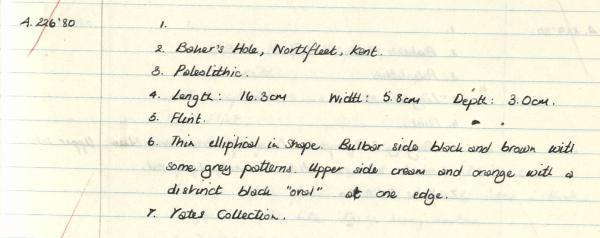 A. 226'80
1.
2. Baker's Hole, Northfleet, Kent.
3. Paleolithic.
4. Length: 16.3cm Width: 5.8cm Depth: 3.0cm.
5. Flint.
6. Thin elliptical in shape. Bulbar side black and brown with
some grey patterns. Upper side cream and orange with a
distinct black "oval" at one edge.
7. Yates Collection.